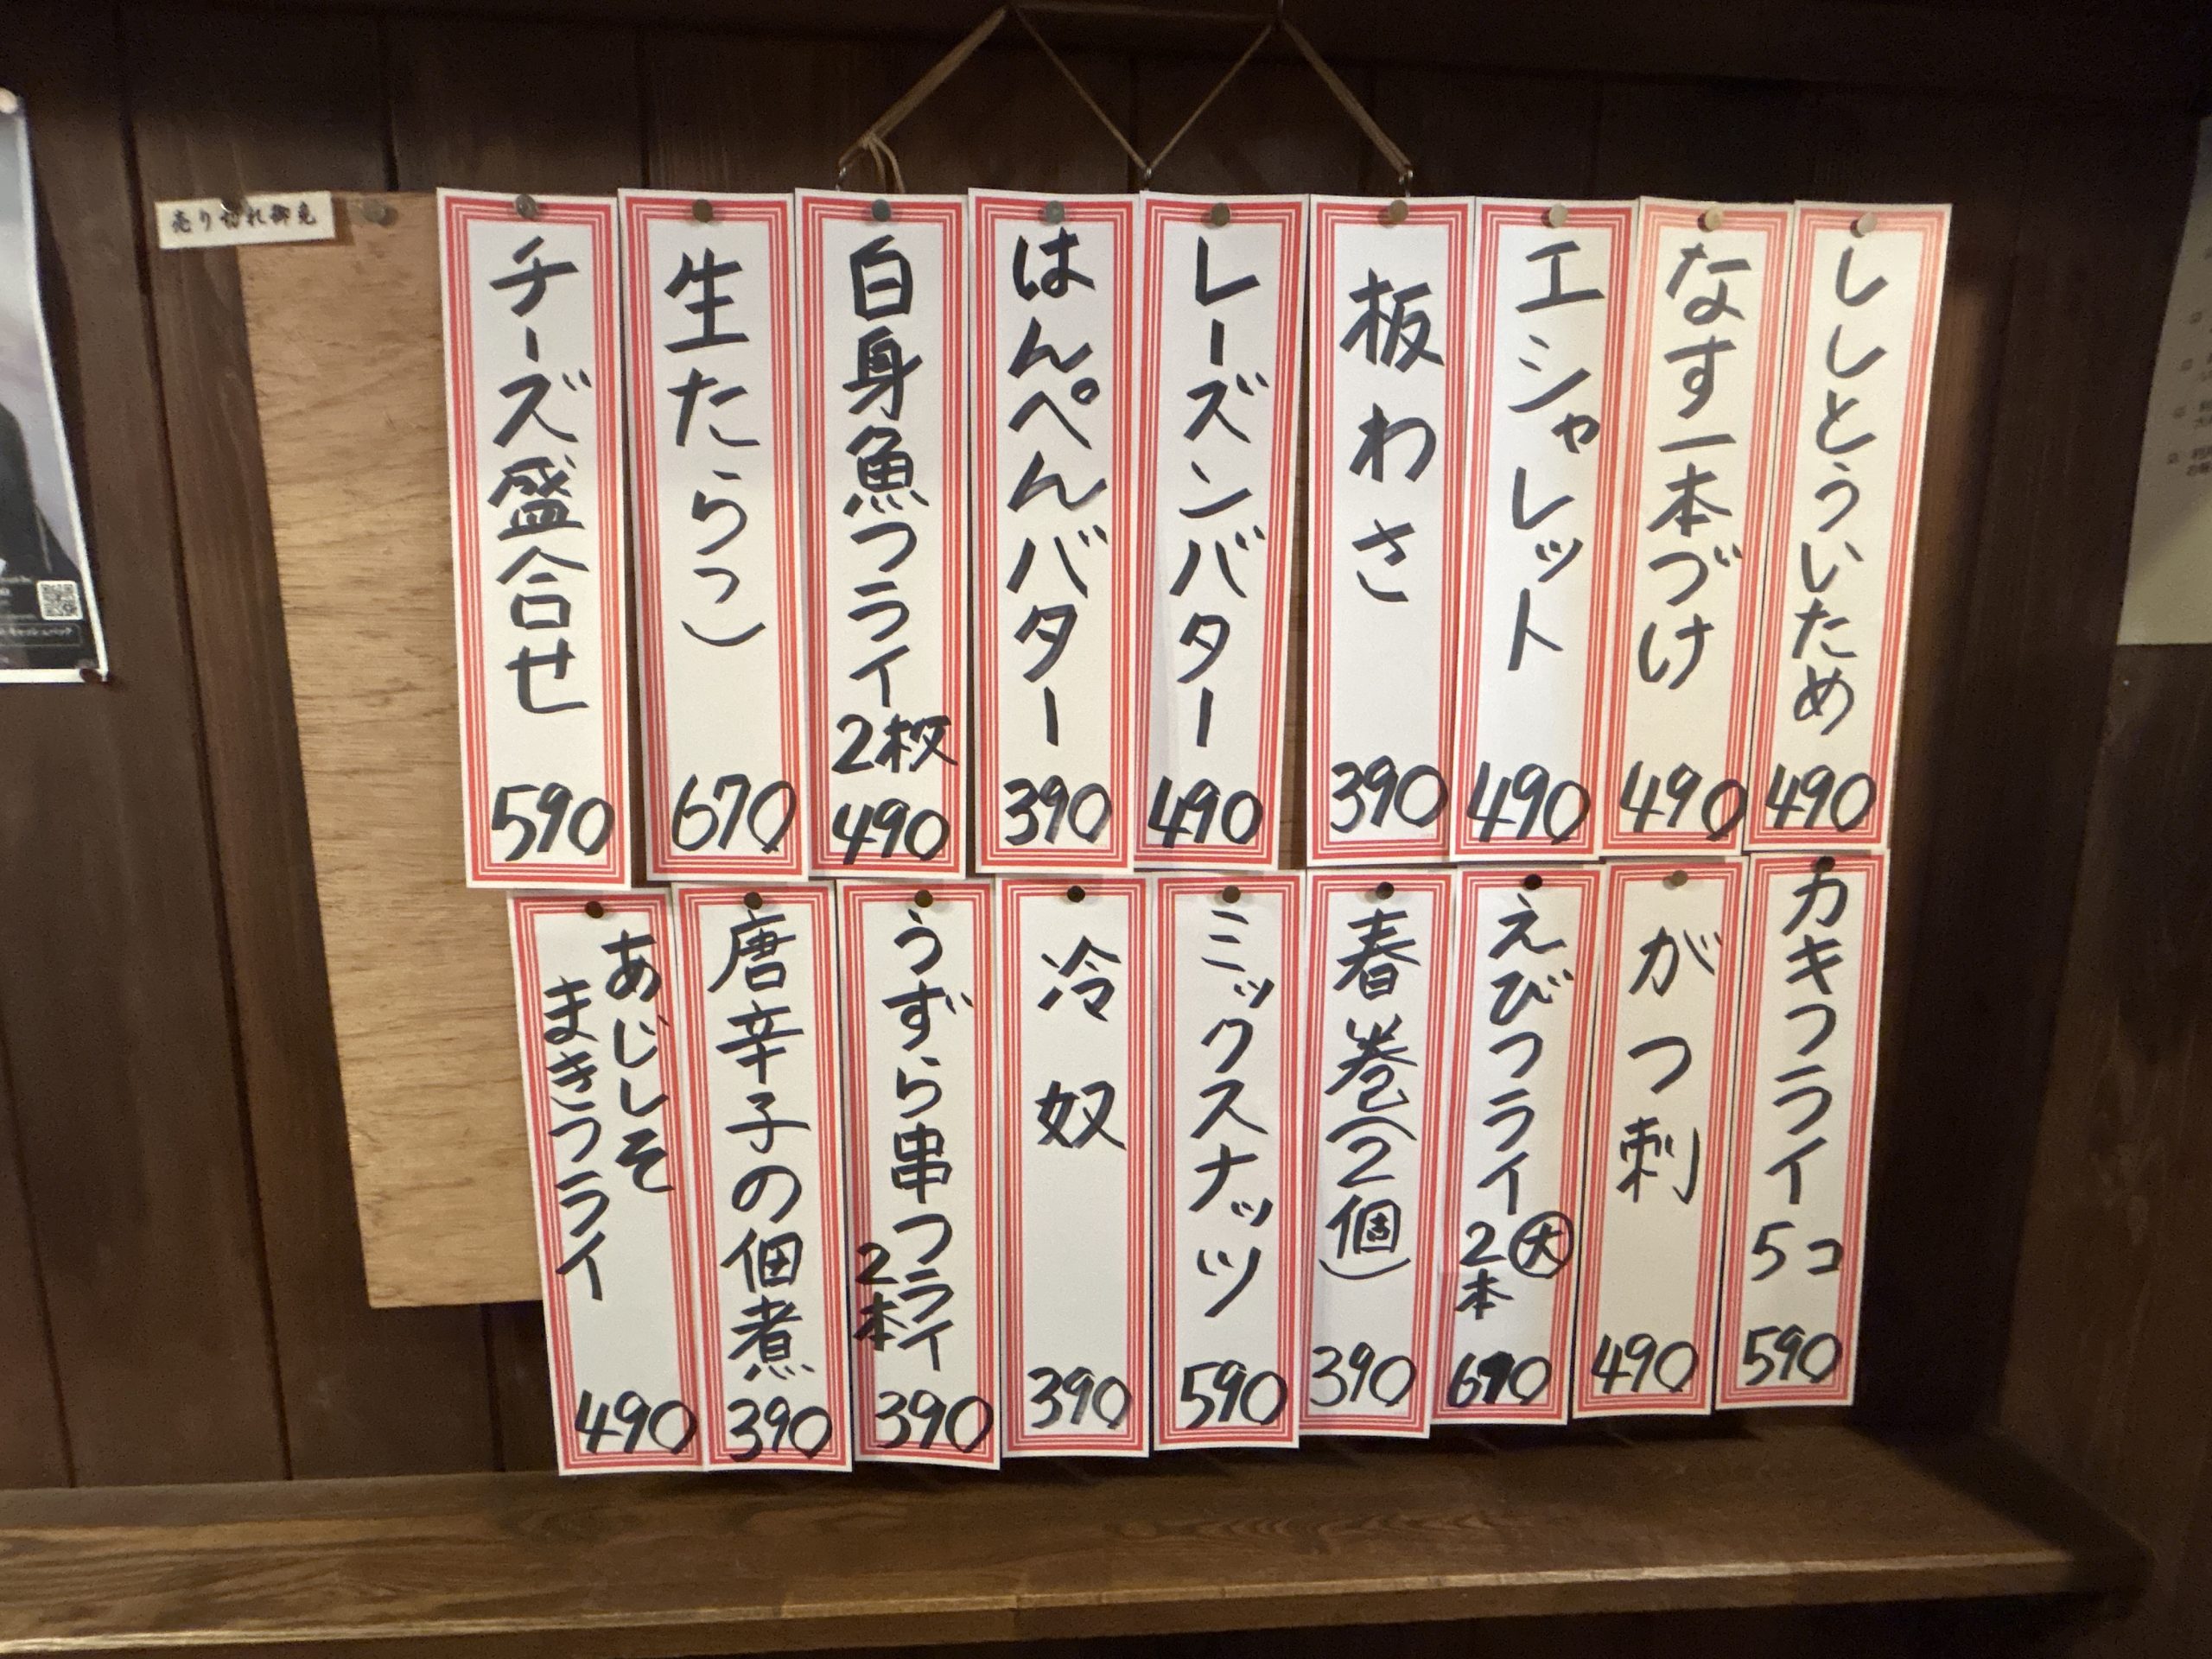 ししとういため
490
なす一本づけ
490
エシャレット
490
板わさ
390
レーズンバター
490
はんぺんバター
390
白身魚フライ
2枚
490
生たらこ
670
チーズ盛合せ
590
売り切れ御免
カキフライ
5コ
590
がつ刺
490
えびフライ
大
2本
690
春巻(2個)
390
ミックスナッツ
590
冷奴
390
うずら串フライ
2本
390
唐辛子の佃煮
390
あじしそ
まきフライ
490